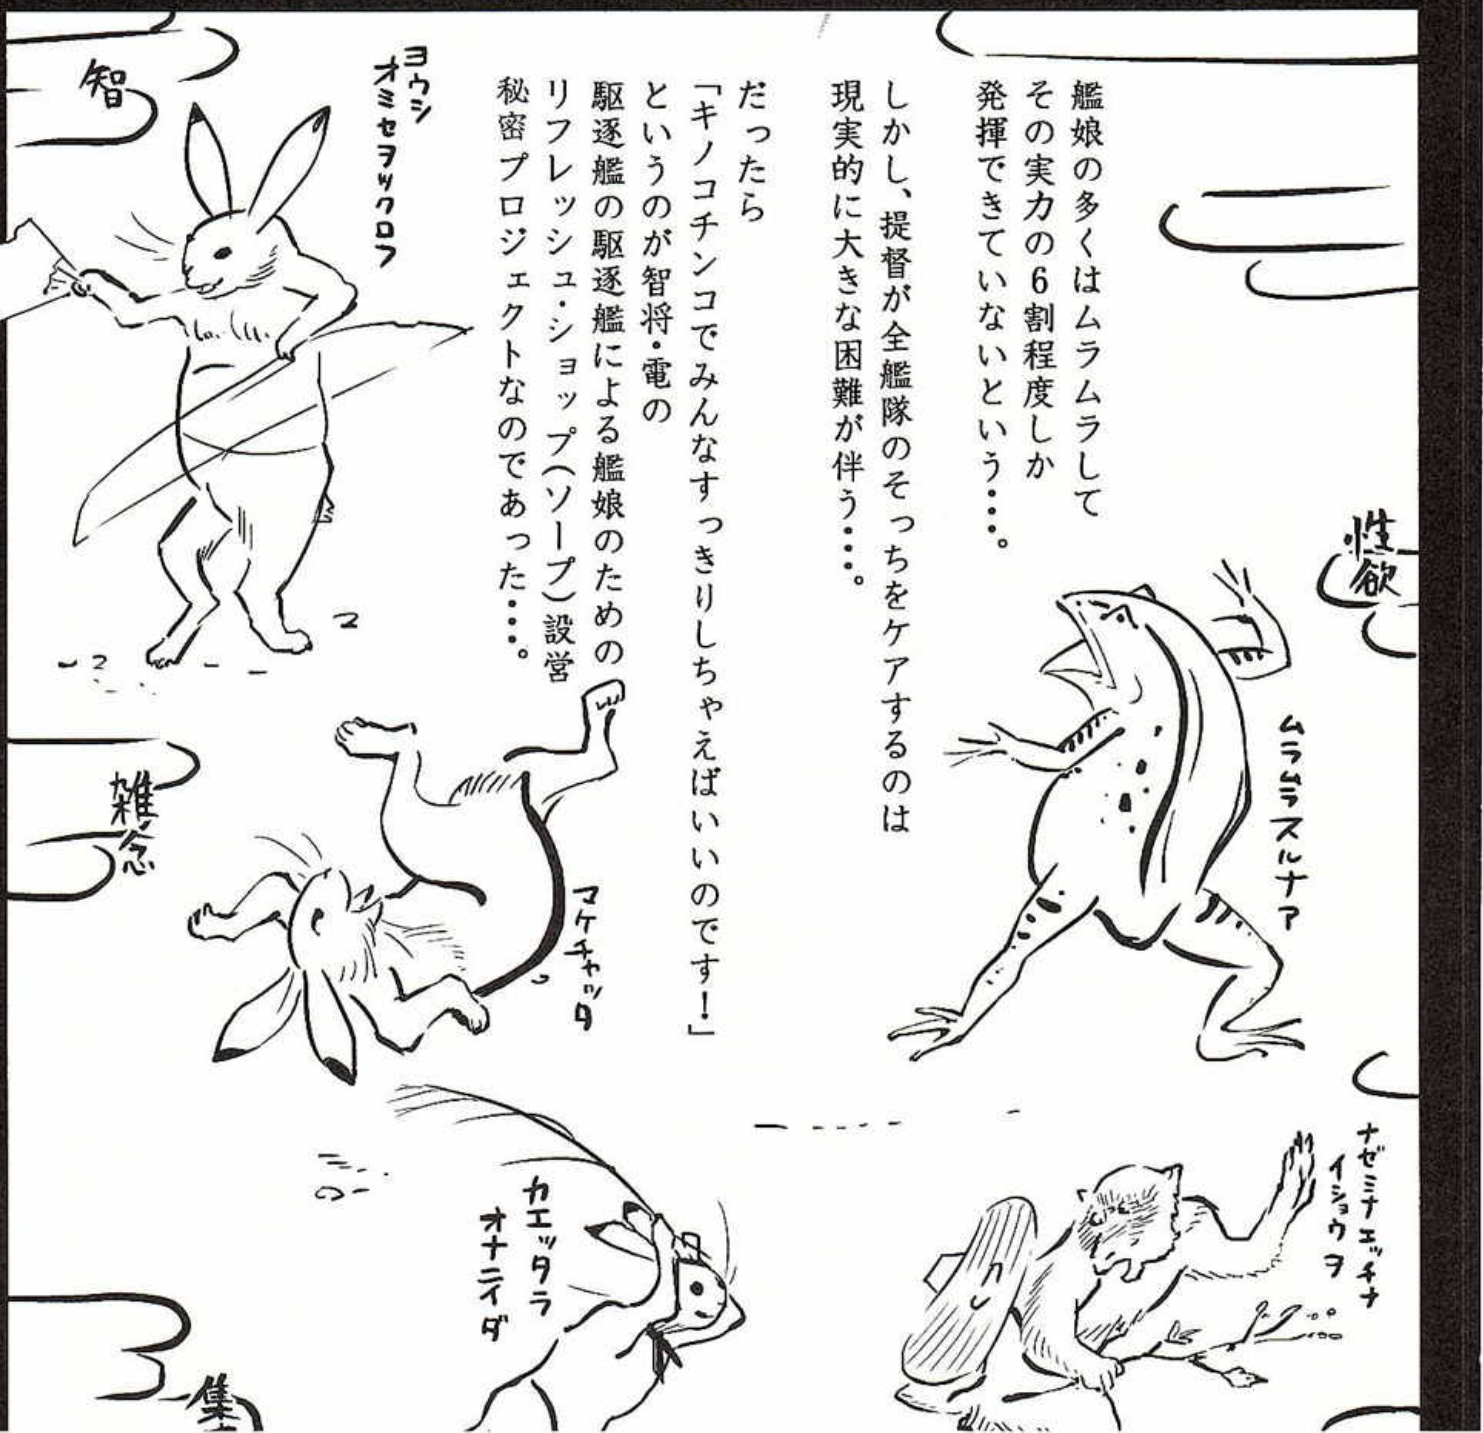 艦娘の多くはムラムラして
その実力の6割程度しか
発揮できていないという‥‥。
しかし、提督が全艦隊のそっちをケアするのは
現実的に大きな困難が伴う‥‥。
だったら
「キノコチンコでみんなすっきりしちゃえばいいのです!」
というのが智将・電の
駆逐艦の駆逐艦による艦娘のための
リフレッシュ・ショップ(ソープ)設営
秘密プロジェクトなのであった‥‥。
性欲
ムラムラスルナァ
ナゼミナエッチナ
イショウヲ
ヨウシ
オミセヲツクロフ
智
雑念
マケチャッタ
カエッタラ
オナニイダ
集